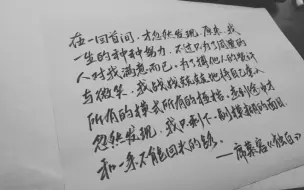 在一回首间，才忽然发现，原来，我
一生的种种努力，不过只为了周遭的
人对我满意而已。为了搏得他人的称许
与微笑，我战战兢兢地将自己套入
所有的模式所有的桎梏。走到途中才
忽然发现，我只剩下一副模糊的面目，
和一条不能回头的路。
——席慕容《独白》